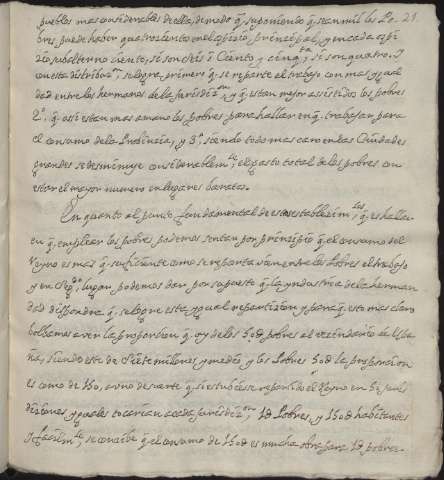 pueblos mas considerables de ella, de modo q̃ suponiendo q̃ sean mil los Po- 21.
bres, puede haber quatrocientos en el ospicio principal, y en cada ospi
cio subalterno ciento, si son seis ô Ciento y cinq.ta si son quatro. Y
con esta distribuz.n se logra, primero q̃ se reparte el trabajo con mas ygual
dad entre los hermanos de la jurisdiz.on, y q̃ estan mejor assistidos los pobres
2º. q̃ assi estan mas a mano los pobres para hallar en q̃ trabajan para
el consumo de la Provincia, y 3º, siendo todo mas caro en las Ciudades
grandes se desminuye considerablem.te el gasto total de los pobres con
estar el mayor numero en lugares baratos.
En quanto al punto fundamental de estos establezim.tos q̃ es hallar
en q̃ emplear los pobres podemos sentar por prinzipio q̃ el consumo del
Reyno es mas q̃ suficiente como se reparta vien entre los Pobres el trabajo
y en seg.do lugar podemos dar por supuesto q̃ la yndustria de la herman
dad dispondra q̃ se logre esta ygual repartizion y para q̃ esto mas claro
bolbamos a ver la proporcion q̃ ay de los 50d pobres al vecindario de Espa
ña, siendo este de siete millones y medio, y los Pobres 50d la proporcion
es como de 150, a uno de suerte q̃ si estubiese repartido el Reyno en 50 juris
diziones yguales tocarian a cada jurisdiz.on 1d Pobres, y 150d habitantes
y facilm.te se conzibe q̃ el consumo de 150d es mucha obra para 1d pobres.